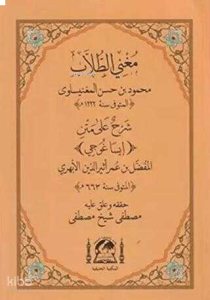 مغني الطلاب
محمود بن حسن المغنيسوي
﴿المتوفى سنة ١٢٢٢ ه﴾
شرح على متن
﴿إيساغوجي﴾
المفضل بن عمر أثير الدين الأبهري
﴿المتوفى سنة ٦٦٣ ه﴾
حققه وعلق عليه
مصطفى شيخ مصطفى
المكتبة الحنيفية